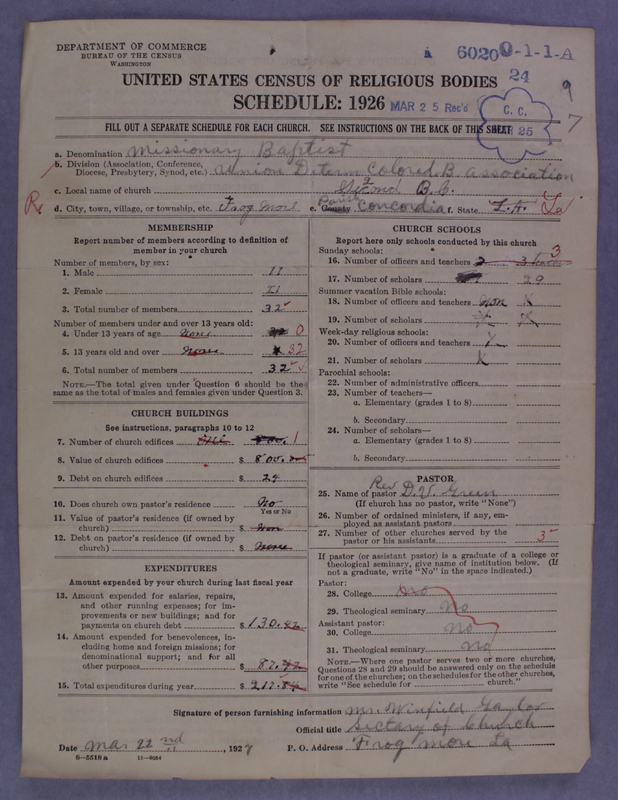 DEPARTMENT OF COMMERCE
BUREAU OF THE CENSUS
WASHINGTON
6020 0-1-1-A
24
UNITED STATES CENSUS OF RELIGIOUS BODIES
SCHEDULE: 1926
MAR 25 Rec'd
C. C.
MAR 25
9
7
FILL OUT A SEPARATE SCHEDULE FOR EACH CHURCH. SEE INSTRUCTIONS ON THE BACK OF THIS SHEET
a. Denomination Missionary Baptist
b. Division (Association, Conference, Diocese, Presbytery, Synod, etc.) union Colored B. association
c. Local name of church Second B. C.
R
d. City, town, village, or township, etc. Frog More e. County Parish Concordia f. State L.A. La
MEMBERSHIP
Report number of members according to definition of member in your church
Number of members, by sex:
1. Male 11
2. Female 21
3. Total number of members 32
Number of members under and over 13 years old:
4. Under 13 years of age None 0
5. 13 years old and over None 32
6. Total number of members 32
NOTE.—The total given under Question 6 should be the same as the total of males and females given under Question 3.
CHURCH BUILDINGS
See instructions, paragraphs 10 to 12
7. Number of church edifices 1
8. Value of church edifices $ 800.
9. Debt on church edifices $ 24
10. Does church own pastor's residence No
Yes or No
11. Value of pastor's residence (if owned by church) $
12. Debt on pastor's residence (if owned by church) $ None
EXPENDITURES
Amount expended by your church during last fiscal year
13. Amount expended for salaries, repairs, and other running expenses; for improvements or new buildings; and for payments on church debt $ 130.42
14. Amount expended for benevolences, including home and foreign missions; for denominational support; and for all other purposes $ 87.42
15. Total expenditures during year $ 217.84
CHURCH SCHOOLS
Report here only schools conducted by this church
Sunday schools:
16. Number of officers and teachers 2 3
17. Number of scholars 29
Summer vacation Bible schools:
18. Number of officers and teachers X
19. Number of scholars X X
Week-day religious schools:
20. Number of officers and teachers X
21. Number of scholars X
Parochial schools:
22. Number of administrative officers
23. Number of teachers—
a. Elementary (grades 1 to 8)
b. Secondary
24. Number of scholars—
a. Elementary (grades 1 to 8)
b. Secondary
PASTOR
25. Name of pastor Rev D. V. Green
(If church has no pastor, write "None")
26. Number of ordained ministers, if any, employed as assistant pastors
27. Number of other churches served by the pastor or his assistants 3
If pastor (or assistant pastor) is a graduate of a college or theological seminary, give name of institution below. (If not a graduate, write "No" in the space indicated.)
Pastor:
28. College
29. Theological seminary No
Assistant pastor:
30. College No
31. Theological seminary no
NOTE.—Where one pastor serves two or more churches, Questions 28 and 29 should be answered only on the schedule for one of the churches; on the schedules for the other churches, write "See schedule for church."
Signature of person furnishing information Mr. Winfield Gaylor
Official title Sectary of Church
Date Mar 22 nd, 1927
P. O. Address Frog more La
6—5518 a
11—9064